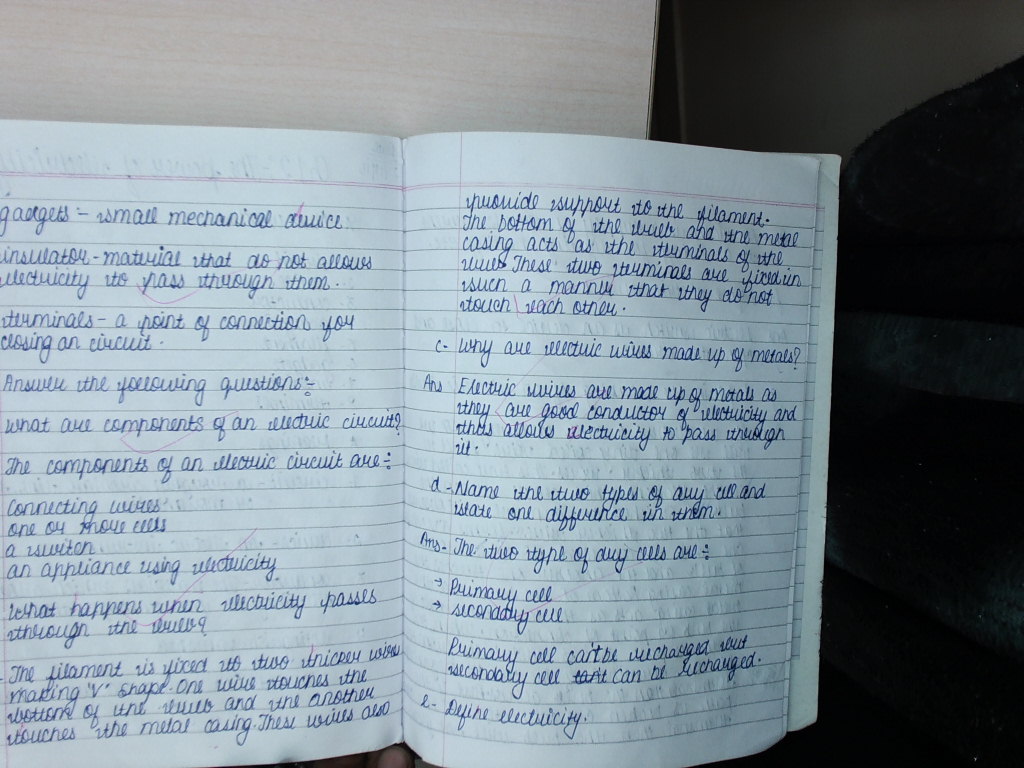 gadgets :- small mechanical device.
insulator - material that do not allows
electricity to pass through them.
terminals - a point of connection for
closing an circuit.
Answer the following questions :-
what are components of an electric circuit?
The components of an electric circuit are :-
Connecting wires
one or more cells
a switch
an appliance using electricity
What happens when electricity passes
through the bulb?
The filament is fixed to two thicker wires
making 'V' shape. One wire touches the
bottom of the bulb and the another
touches the metal casing. These wires also
provide support to the filament.
The bottom of the bulb and the metal
casing acts as the terminals of the
bulb. These two terminals are fixed in
such a manner that they do not
touch each other.
c- Why are electric wires made up of metals?
Ans Electric wires are made up of metals as
they are good conductor of electricity and
thus allows electricity to pass through
it.
d - Name the two types of dry cell and
state one difference in them.
Ans - The two type of dry cells are :-
→ Primary cell
→ secondary cell
Primary cell can't be recharged but
secondary cell can be recharged.
e - Define electricity.